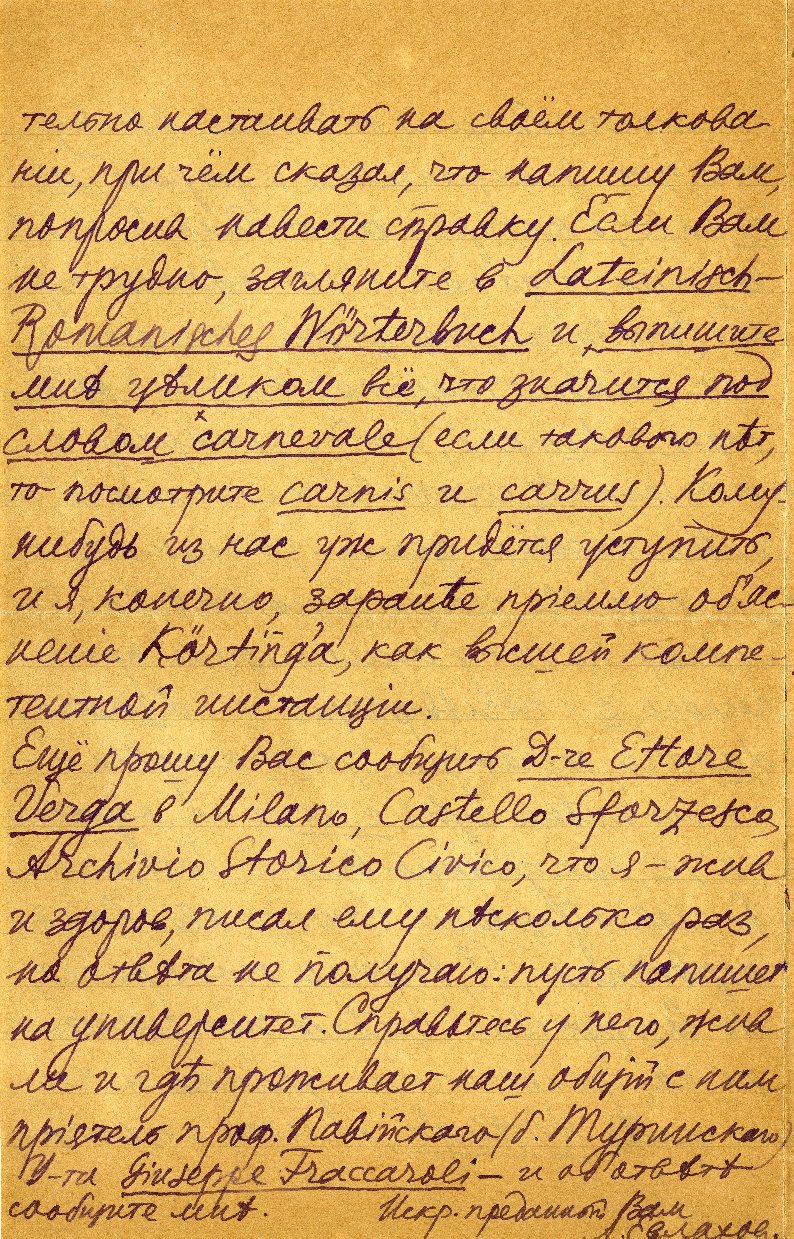 тельно настаивать на своём толкова-
нiи, при чём сказал, что напишу Вам,
попросив навести справку. Если Вам
не трудно, загляните в Lateinisch-
Romanisches Wörterbuch и выпишите
мнѣ цѣликом всё, что значится под
словом ˣcarnevale (если такового нѣт,
то посмотрите carnis и carrus). Кому-
нибудь из нас уж придётся уступить,
и я, конечно, заранѣе прiемлю об'яс-
ненiе Körting'а, как высшей компе-
тентной инстанцiи.
Ещё прошу Вас сообщить D-re Ettore
Verga в Milano, Castello Sforzesco,
Archivio Storico Civico, что я – жив
и здоров, писал ему нѣсколько раз,
но отвѣта не получаю: пусть напишет
на университет. Справьтесь у него, жив
ли и гдѣ проживает наш общiй с ним
прiятель проф. Павiйскаго (б. Туринскаго)
У-та Giuseppe Fraccaroli – и об отвѣтѣ
сообщите мнѣ. Искр. преданный Вам
А. Евлахов.